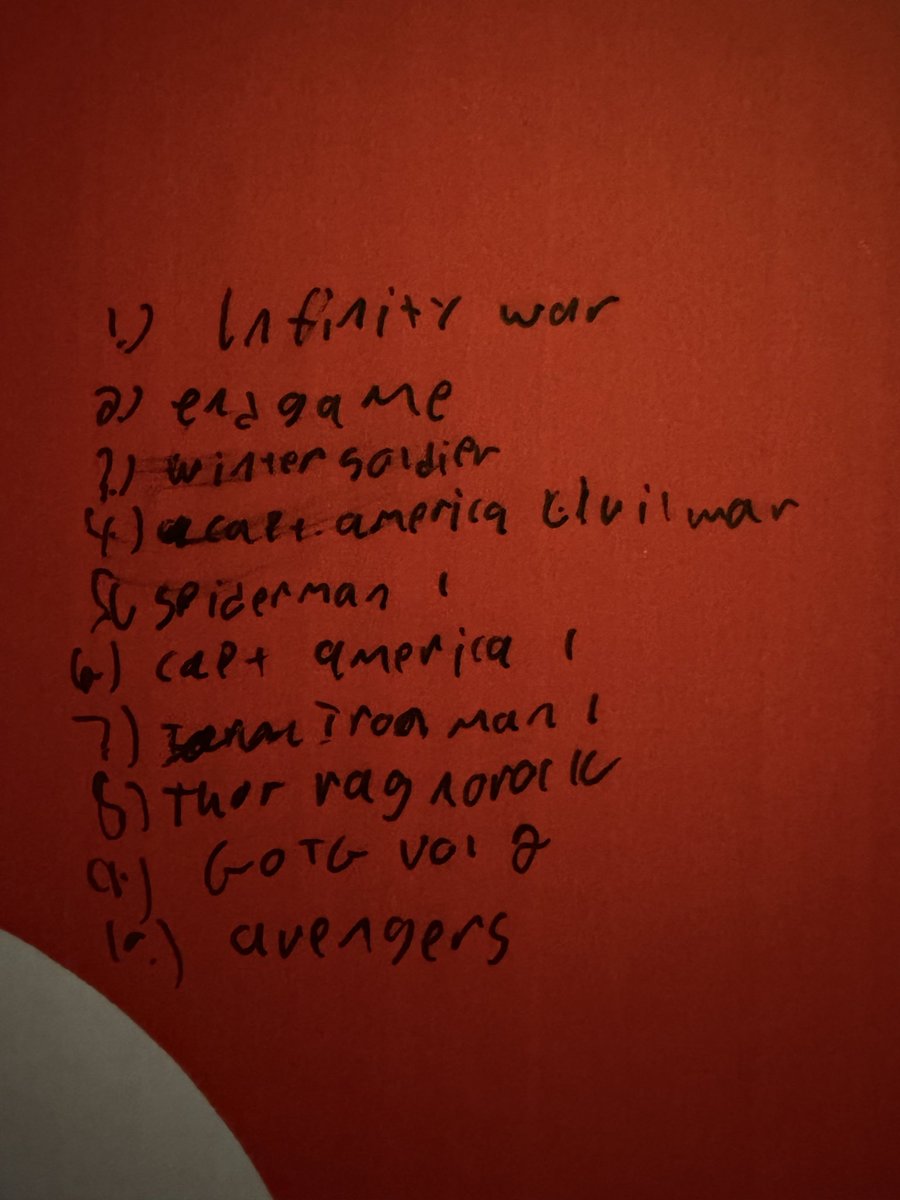 1.) Infinity war
2.) endgame
3.) winter soldier
4.) capt. america civil war
5.) spiderman 1
6.) capt america 1
7.) Iron man 1
8.) thor ragnorock
9.) GOTG vol 2
10.) avengers